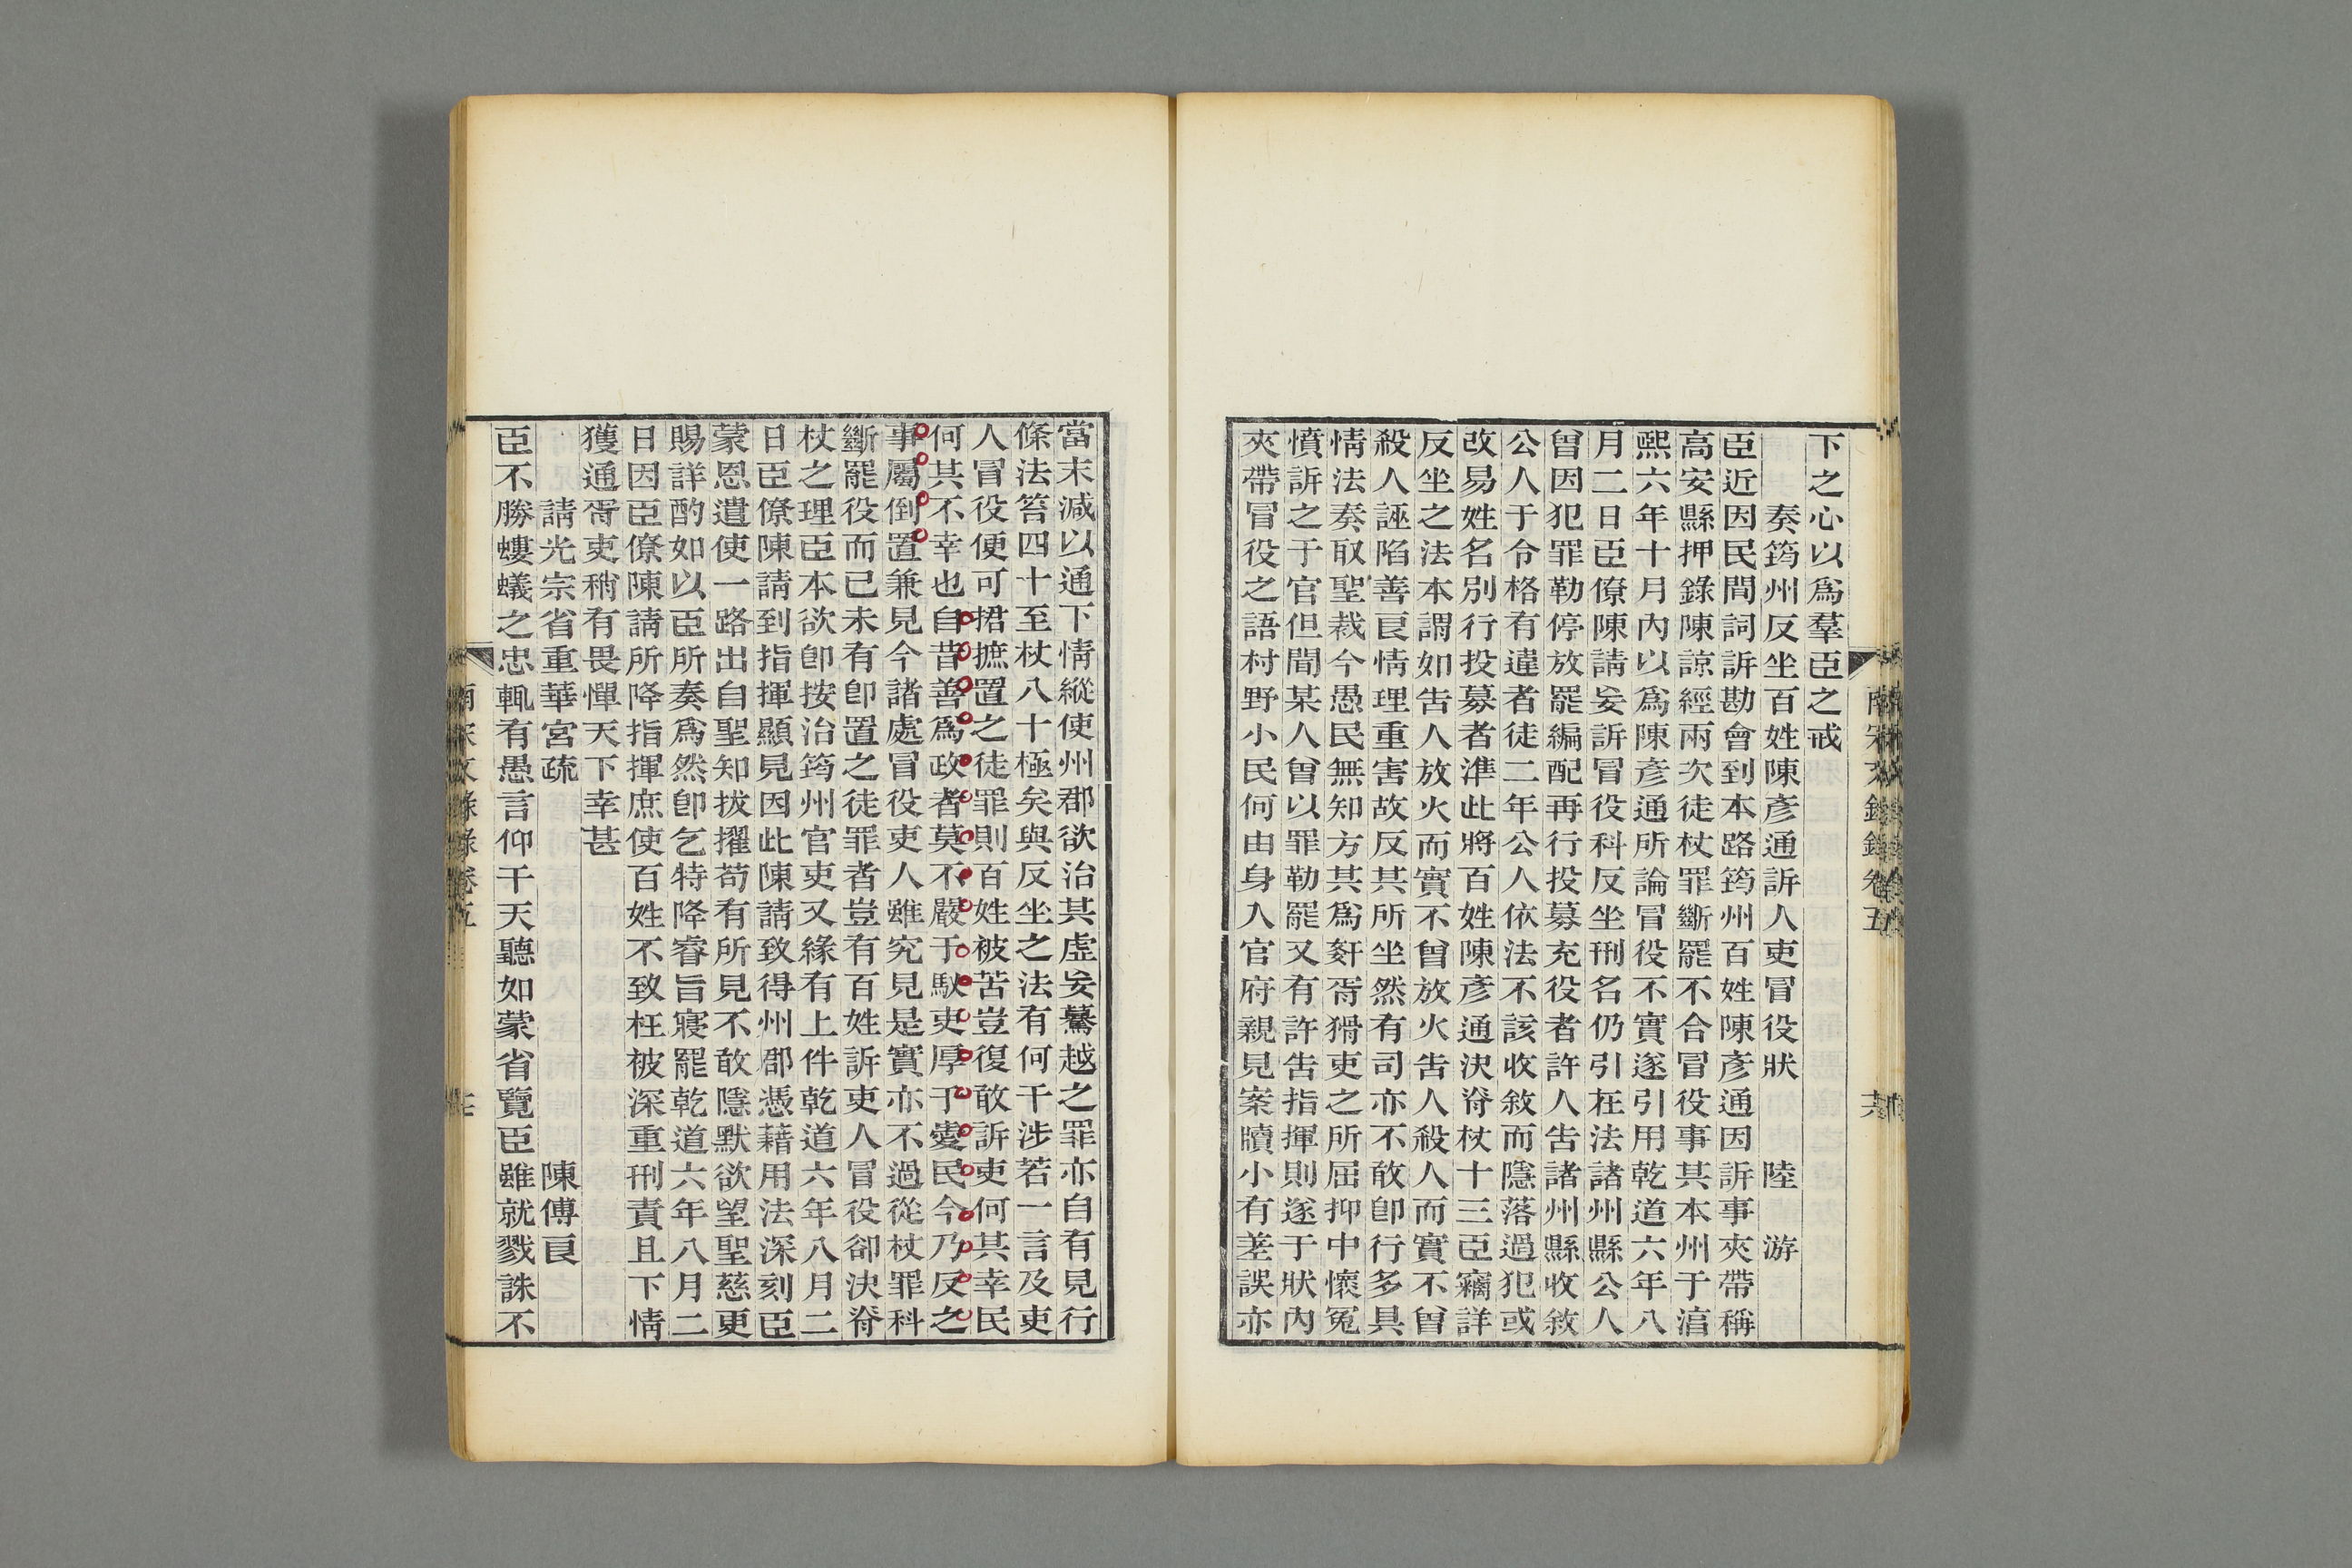 下之心以爲羣臣之戒
奏筠州反坐百姓陳彥通訴人吏冒役狀 陸游
臣近因民間詞訴勘會到本路筠州百姓陳彥通因訴事夾帶稱
高安縣押錄陳諒經兩次徒杖罪斷罷不合冒役事其本州于湻
熙六年十月內以爲陳彥通所論冒役不實遂引用乾道六年八
月二日臣僚陳請妄訴冒役科反坐刑名仍引枉法諸州縣公人
曾因犯罪勒停放罷編配再行投募充役者許人吿諸州縣收敘
公人于令格有違者徒二年公人依法不該收敘而隱落過犯或
改易姓名別行投募者準此將百姓陳彥通決脊杖十三臣竊詳
反坐之法本謂如吿人放火而實不曾放火吿人殺人而實不曾
殺人誣陷善良情理重害故反其所坐然有司亦不敢卽行多具
情法奏取聖裁今愚民無知方其爲姧胥猾吏之所屈抑中懷冤
憤訴之于官但聞某人曾以罪勒罷又有許吿指揮則遂于狀內
夾帶冒役之語村野小民何由身入官府親見案牘小有差誤亦
南宋文錄錄卷五 六
當末減以通下情縱使州郡欲治其虛妄驀越之罪亦自有見行
條法笞四十至杖八十極矣與反坐之法有何干涉若一言及吏
人冒役便可捃摭置之徒罪則百姓被苦豈復敢訴吏何其幸民
何其不幸也自昔善爲政者莫不嚴于馭吏厚于愛民今乃反之
事屬倒置兼見今諸處冒役吏人雖究見是實亦不過從杖罪科
斷罷役而已未有卽置之徒罪者豈有百姓訴吏人冒役卻決脊
杖之理臣本欲卽按治筠州官吏又緣有上件乾道六年八月二
日臣僚陳請到指揮顯見因此陳請致得州郡憑藉用法深刻臣
蒙恩遣使一路出自聖知拔擢苟有所見不敢隱默欲望聖慈更
賜詳酌如以臣所奏爲然卽乞特降睿旨寢罷乾道六年八月二
日因臣僚陳請所降指揮庶使百姓不致枉被深重刑責且下情
獲通胥吏稍有畏憚天下幸甚
請光宗省重華宮疏 陳傅良
臣不勝螻蟻之忠輒有愚言仰干天聽如蒙省覽臣雖就戮誅不
南宋文錄錄卷五